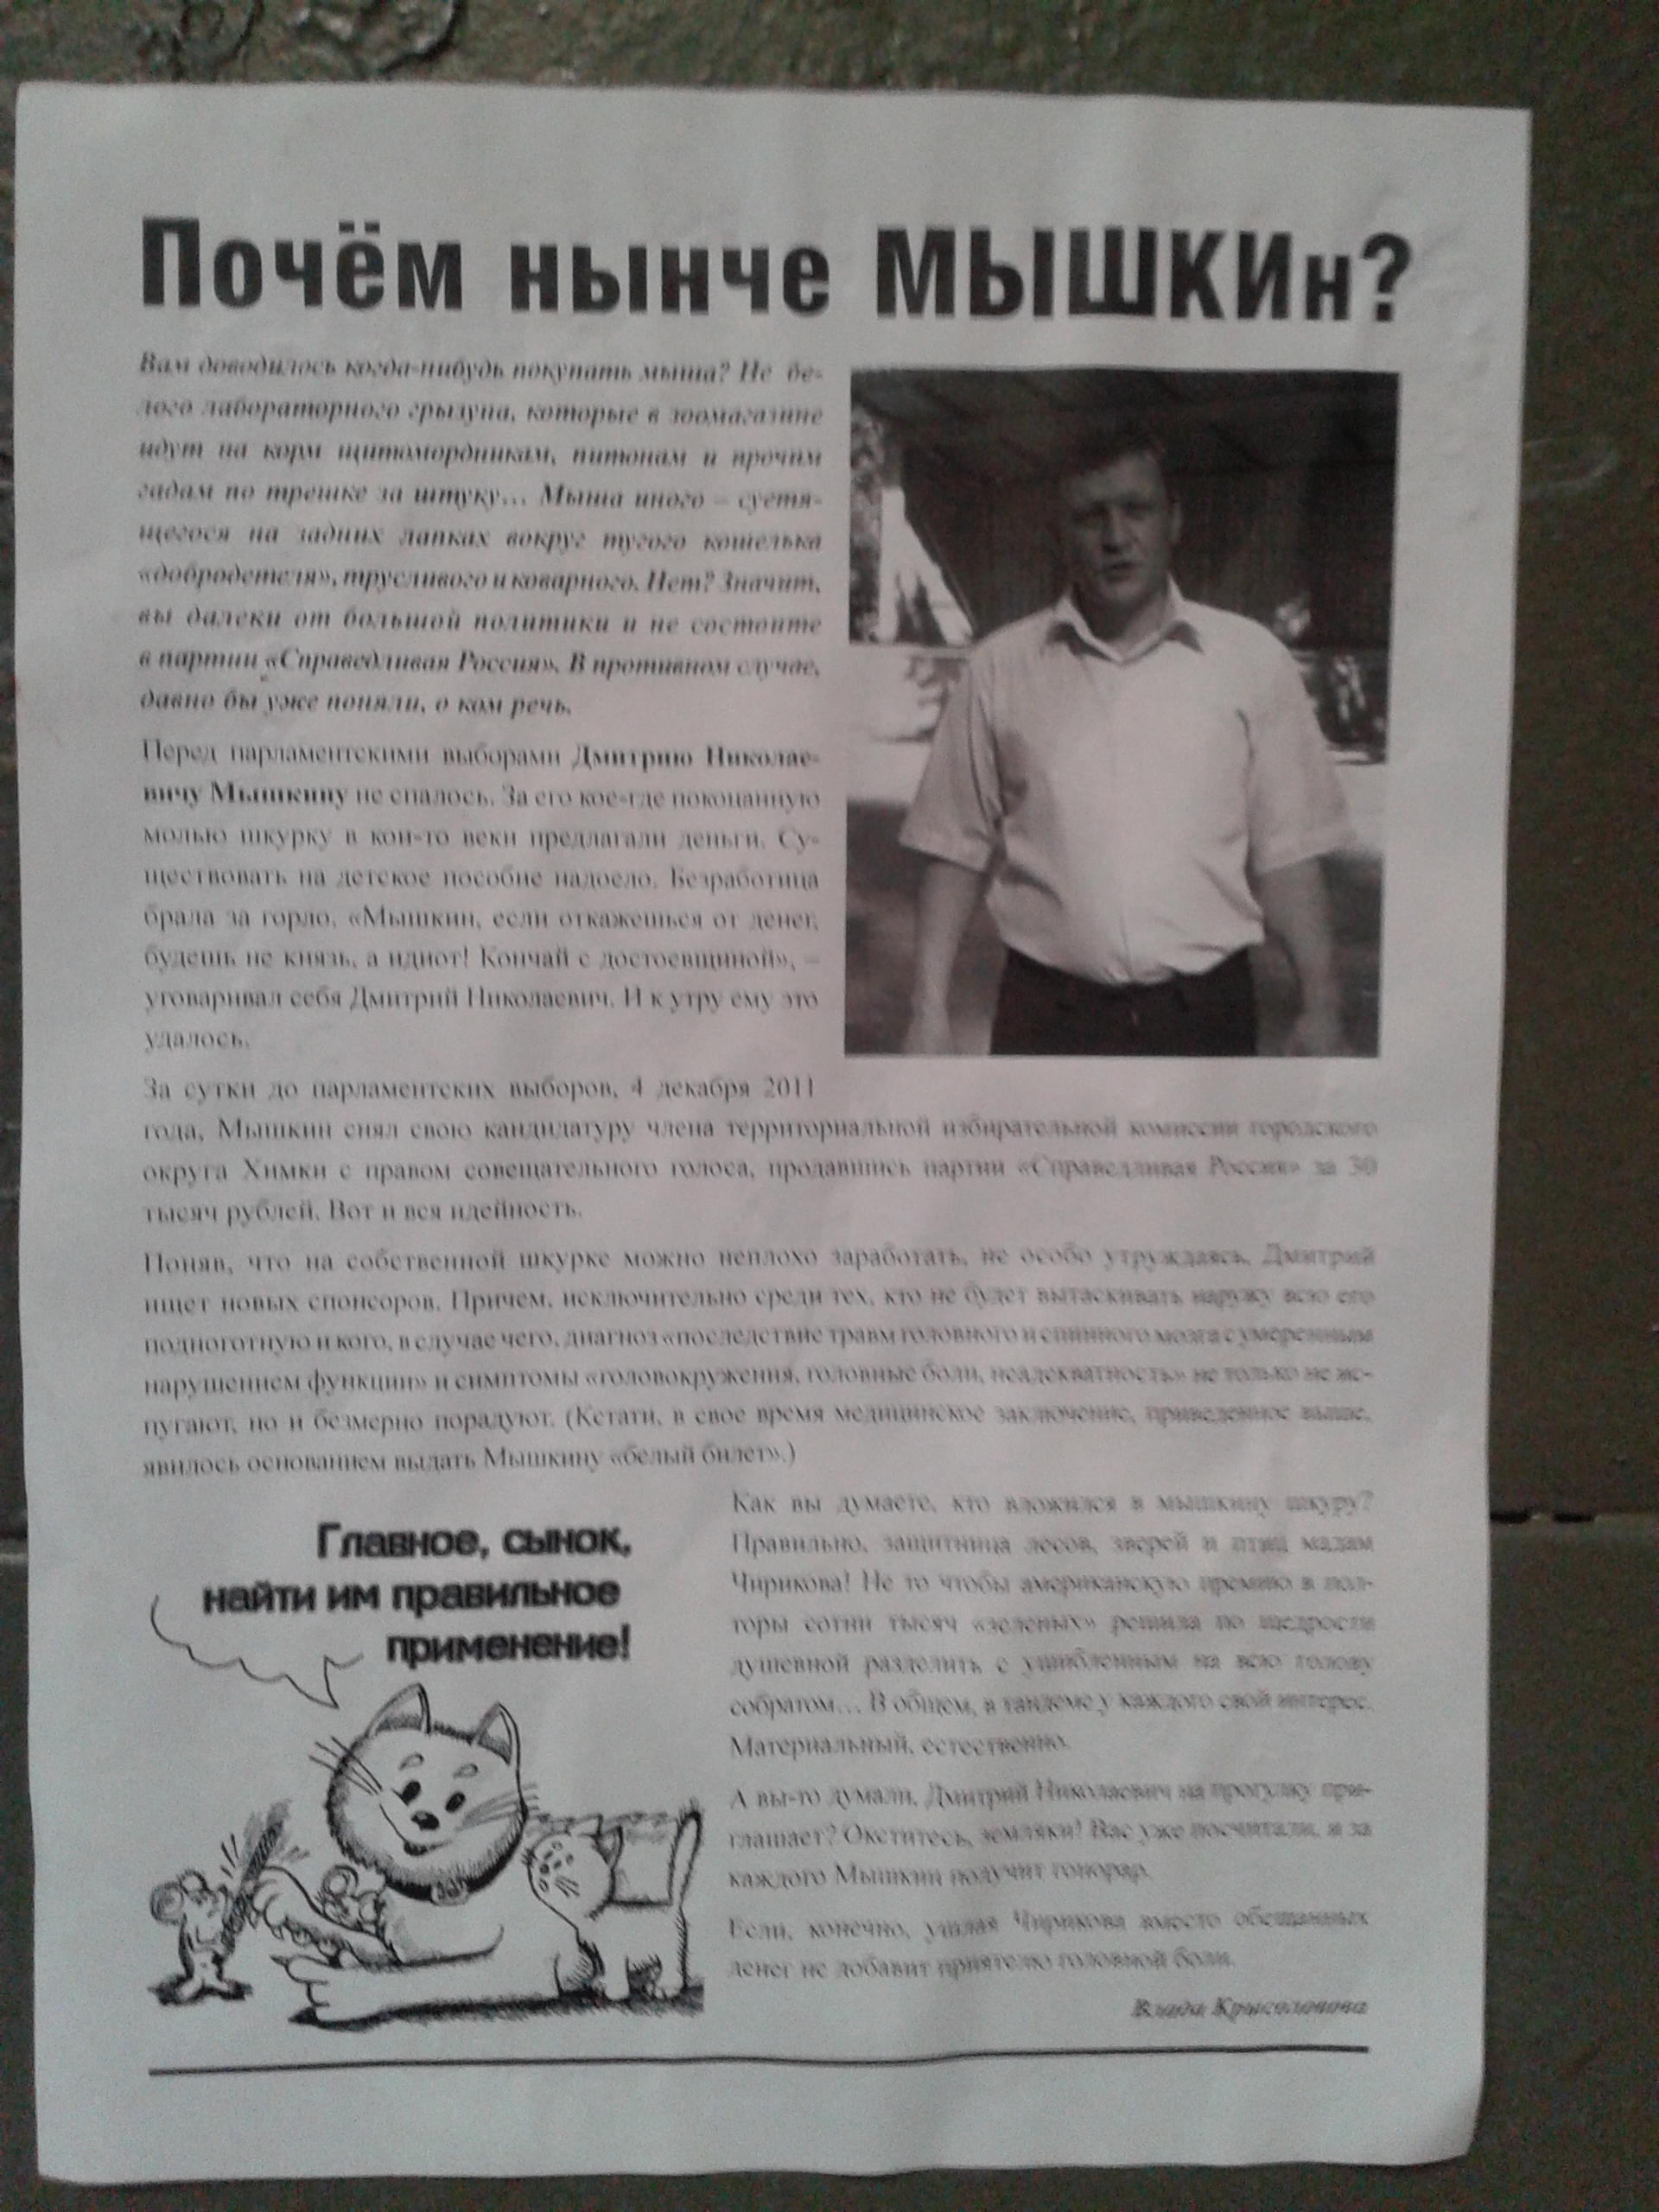 Почём нынче МЫШКИн?
Вам доводилось когда-нибудь покупать мыша? Не бе-
лого лабораторного грызуна, которые в зоомагазине
идут на корм щитомордникам, питонам и прочим
гадам по трешке за штуку... Мыша иного – суетя-
щегося на задних лапках вокруг тугого кошелька
«добродетеля», трусливого и коварного. Нет? Значит,
вы далеки от большой политики и не состоите
в партии «Справедливая Россия». В противном случае,
давно бы уже поняли, о ком речь.
Перед парламентскими выборами Дмитрию Николае-
вичу Мышкину не спалось. За его кое-где покоцанную
молью шкурку в кои-то веки предлагали деньги. Су-
ществовать на детское пособие надоело. Безработица
брала за горло. «Мышкин, если откажешься от денег,
будешь не князь, а идиот! Кончай с достоевщиной», –
уговаривал себя Дмитрий Николаевич. И к утру ему это
удалось.
За сутки до парламентских выборов, 4 декабря 2011
года, Мышкин снял свою кандидатуру члена территориальной избирательной комиссии городского
округа Химки с правом совещательного голоса, продавшись партии «Справедливая Россия» за 30
тысяч рублей. Вот и вся идейность.
Поняв, что на собственной шкурке можно неплохо заработать, не особо утруждаясь, Дмитрий
ищет новых спонсоров. Причем, исключительно среди тех, кто не будет вытаскивать наружу всю его
подноготную и кого, в случае чего, диагноз «последствие травм головного и спинного мозга с умеренным
нарушением функции» и симптомы «головокружения, головные боли, неадекватность» не только не ис-
пугают, но и безмерно порадуют. (Кстати, в свое время медицинское заключение, приведенное выше,
явилось основанием выдать Мышкину «белый билет».)
Как вы думаете, кто вложился в мышкину шкуру?
Правильно, защитница лесов, зверей и птиц мадам
Чирикова! Не то чтобы американскую премию в пол-
торы сотни тысяч «зеленых» решила по щедрости
душевной разделить с ушибленным на всю голову
собратом... В общем, в тандеме у каждого свой интерес.
Материальный, естественно.
А вы-то думали, Дмитрий Николаевич на прогулку при-
глашает? Окститесь, земляки! Вас уже посчитали, и за
каждого Мышкин получит гонорар.
Если, конечно, ушлая Чирикова вместо обещанных
денег не добавит приятелю головной боли.
Влада Крысоловова
Главное, сынок,
найти им правильное
применение!